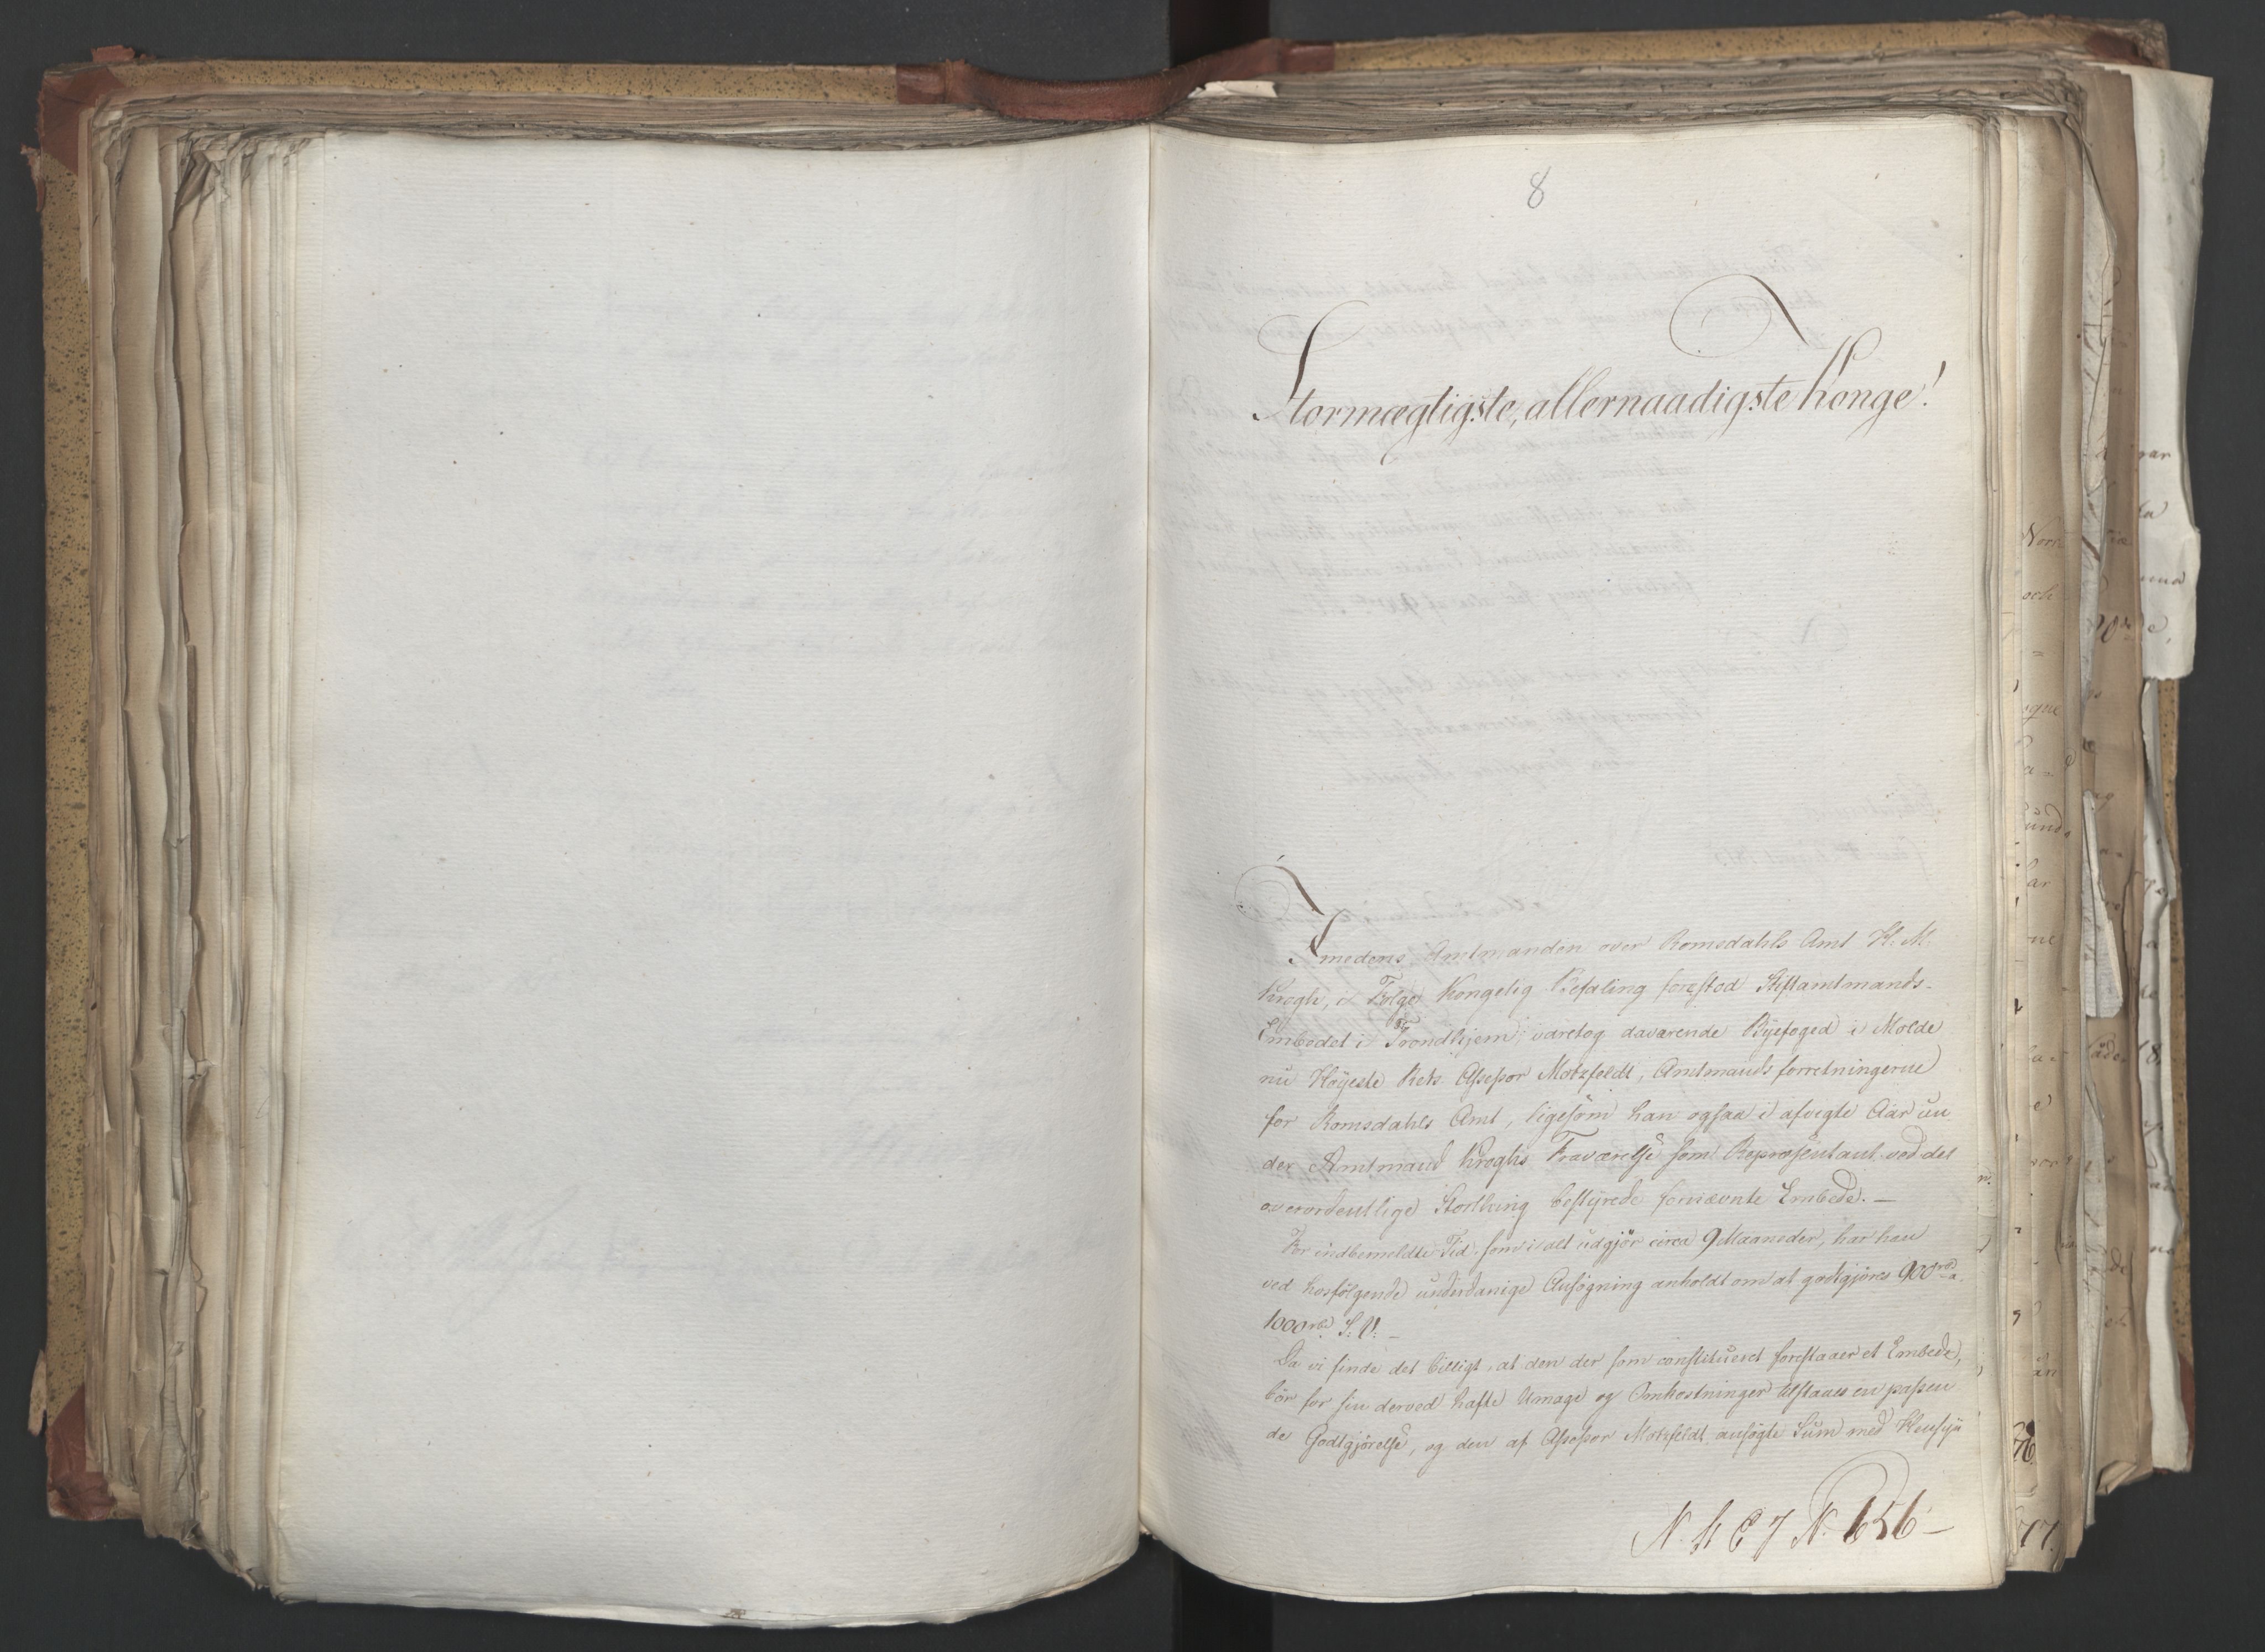 8
Stormægtigste, allernaadigste Konge!
Imedens Amtmanden over Romsdahls Amt H. M.
Krogh, i Følge Kongelig Befaling forestod Stiftamtmands-
Embedet i Trondhjem, varetog daværende Byefoged i Molde
nu Høyeste Rets Assessor Motzfeldt, Amtmands forretningerne
for Romsdahls Amt, ligesom han ogsaa i afvigte Aar un
der Amtmand Kroghs Fraværelse som Repræsentant ved det
overordentlige Storthing bestyrede fornævnte Embede. –
For indbemeldte Tid, som i alt udgjør circa 9 Maaneder, har han
ved hosfølgende underdanige Ansøgning anholdt om at godtgjøres 900 rbd a
1000 rbd S: V: –
Da vi finde det billigt, at den der som constitueret forestaaer et Embede,
bør for sin derved hafte Umage og Omkostninger tilstaaes en passen
de Godtgjørelse, og den af Assessor Motzfeldt ansøgte Sum med Hensyn